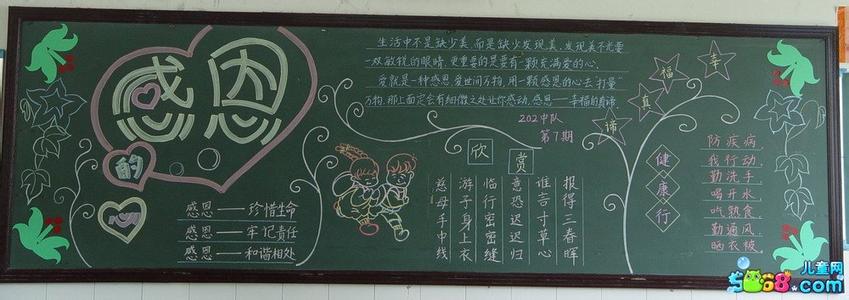 感恩
的
心
感恩——珍惜生命
感恩——牢记责任
感恩——和谐相处
生活中不是缺少美,而是缺少发现美,发现美不光要
一双敏锐的眼睛,更重要的是要有一颗充满爱的心.
爱就是一种感恩,爱世间万物,用一颗感恩的心去打量
万物,那上面定会有细微之处让你感动.感恩——幸福的真谛.
202中队
第7期
欣赏
慈母手中线
游子身上衣
临行密密缝
意恐迟迟归
谁言寸草心
报得三春晖
幸福真谛
健康行
防疾病,
我行动,
勤洗手,
喝开水,
吃熟食,
勤通风,
晒衣被.
5068.com
儿童网